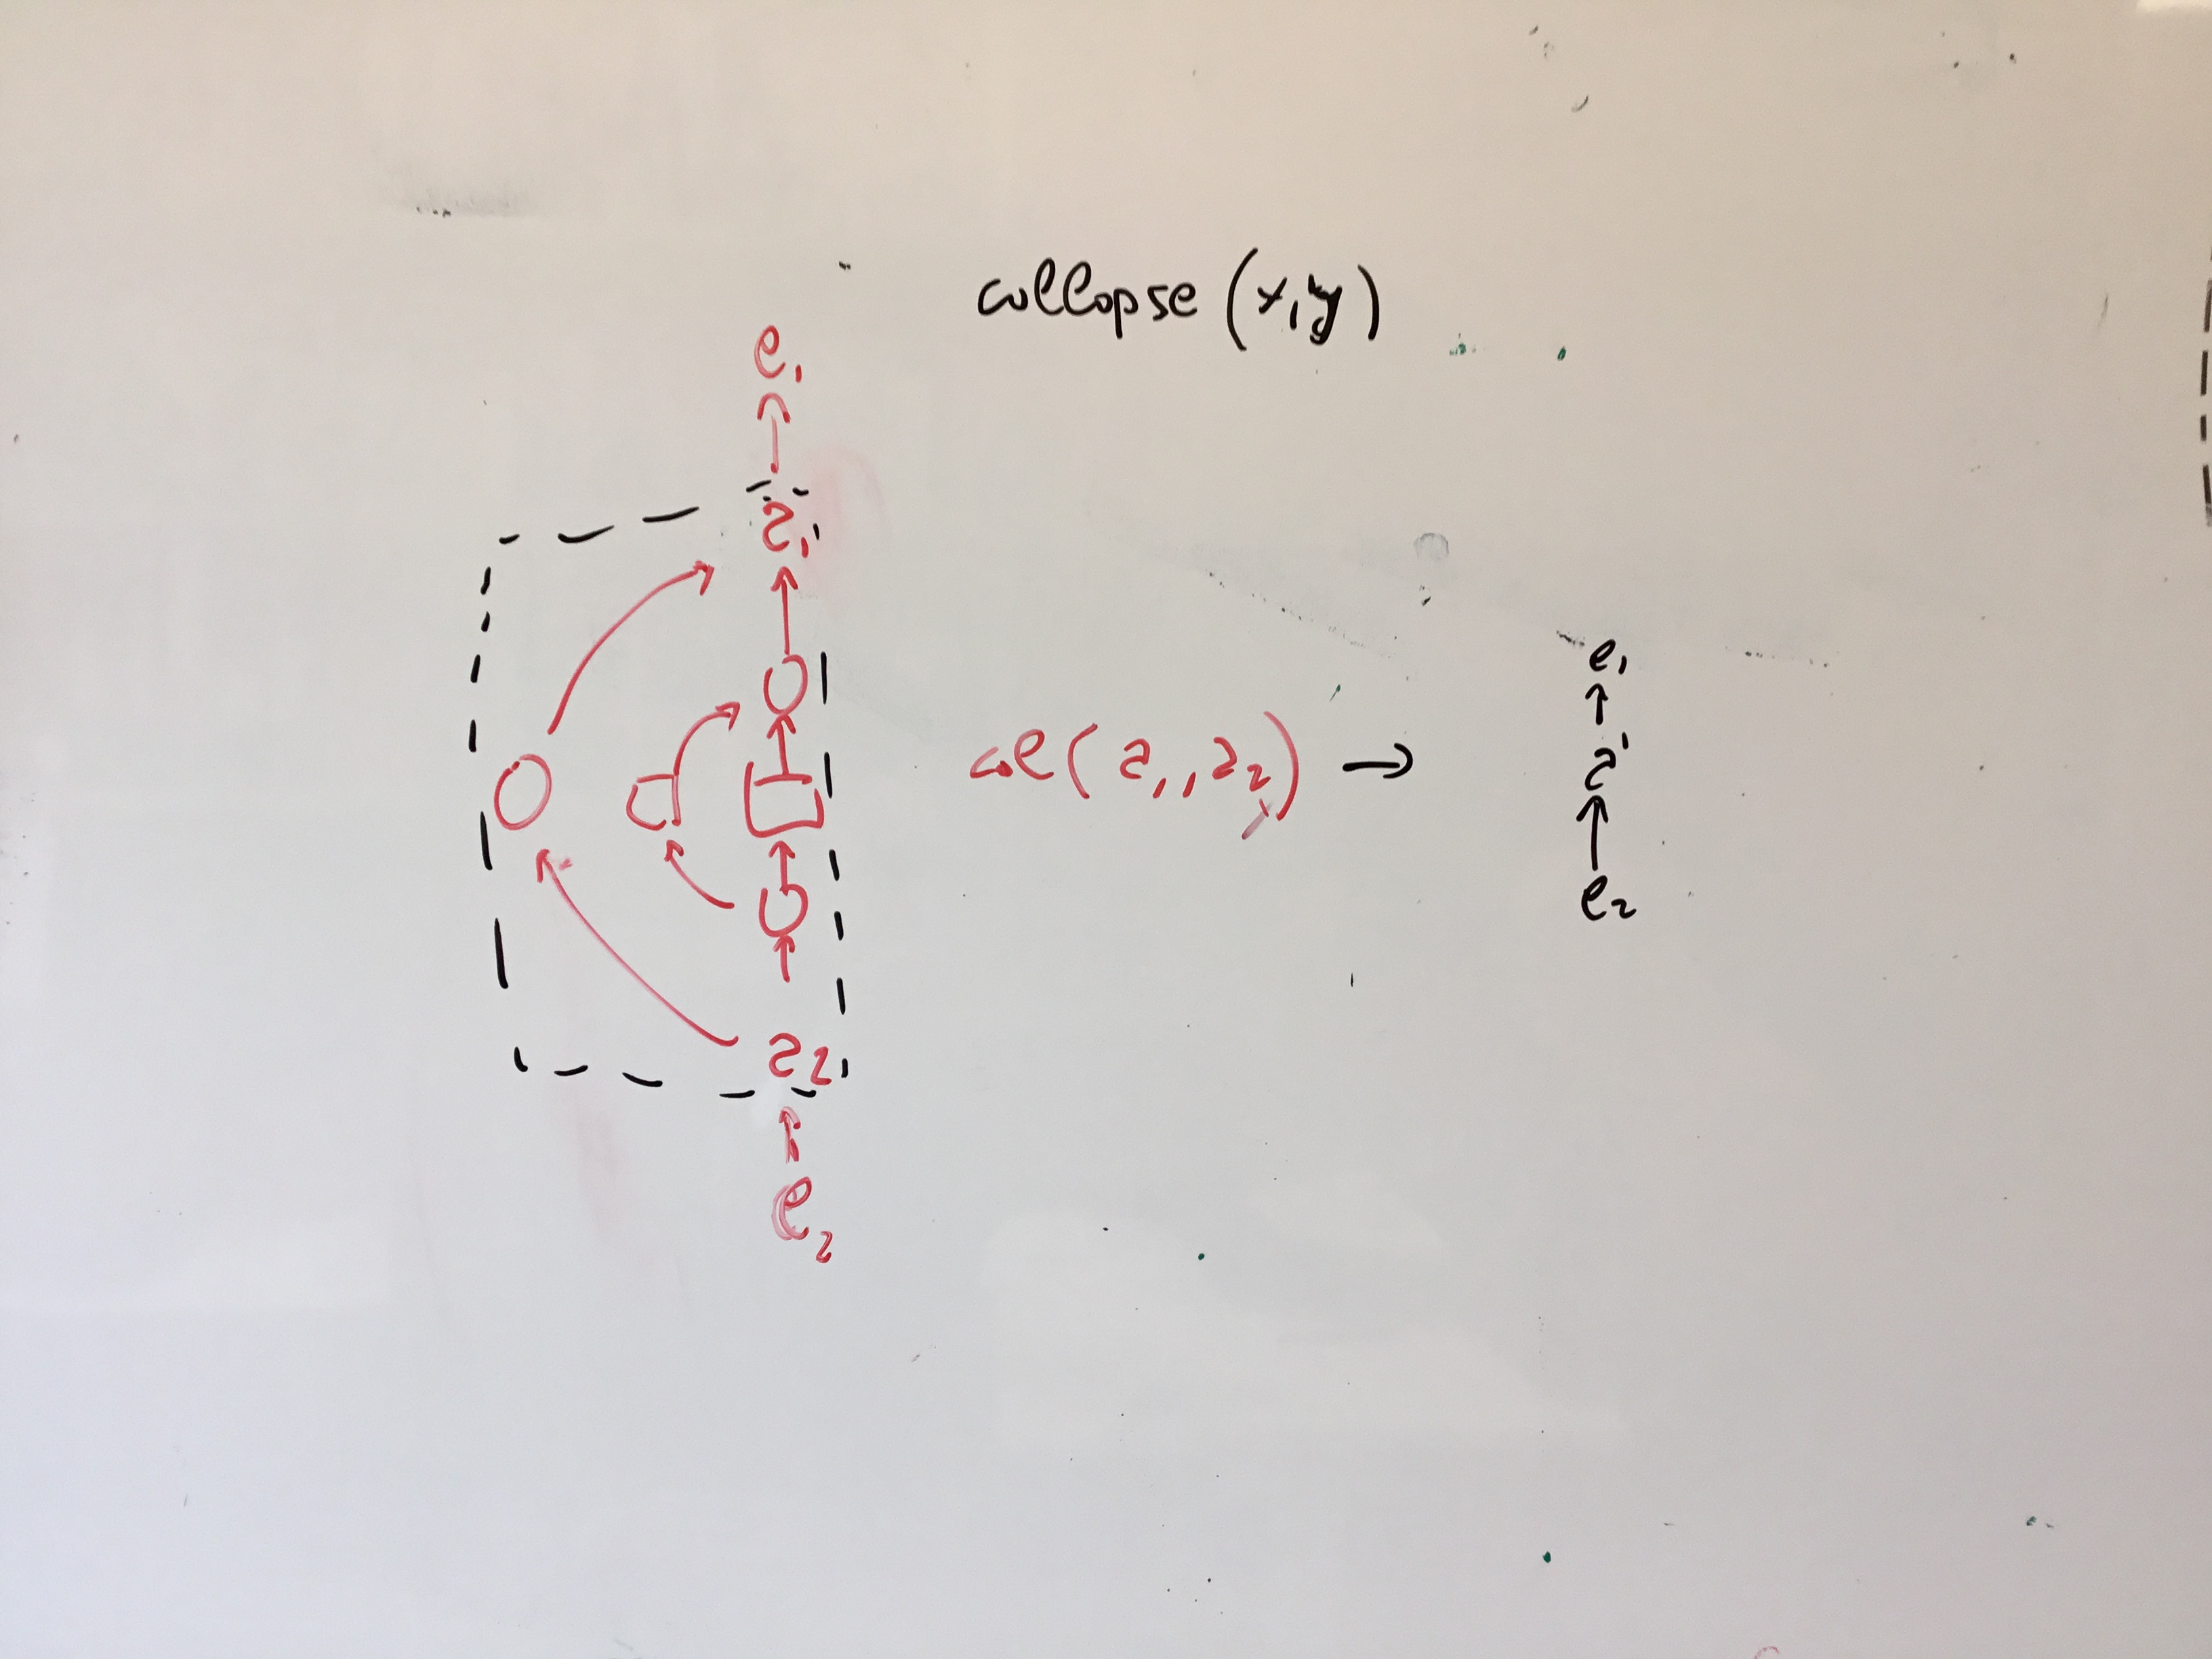 collapse (x,y)
e₁
a₁
a₂
e₂
col(a₁,a₂) →
e₁
a'
e₂